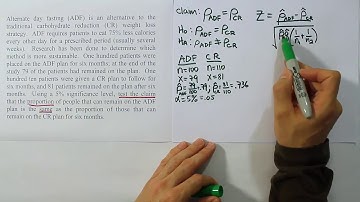 Alternate day fasting (ADF) is an alternative to the
traditional carbohydrate reduction (CR) weight loss
strategy. ADF requires patients to eat 75% less calories
every other day for a prescribed period (usually several
weeks). Research has been done to determine which
method is more sustainable. One hundred patients were
placed on the ADF plan for six months; at the end of the
study 79 of the patients had remained on the plan. One
hundred ten patients were given a CR plan to follow for
six months, and 81 patients remained on the plan after six
months. Using a 5% significance level, test the claim
that the proportion of people that can remain on the ADF
plan is the same as the proportion of those that can
remain on the CR plan for six months.
claim: P_ADF = P_CR
H₀: P_ADF = P_CR
Hₐ: P_ADF ≠ P_CR
ADF CR
n=100 n=110
x=79 x=81
p̂_ADF = 79/100 = .79 p̂_CR = 81/110 = .736
α=5%=.05
Z = p̂_ADF - p̂_CR